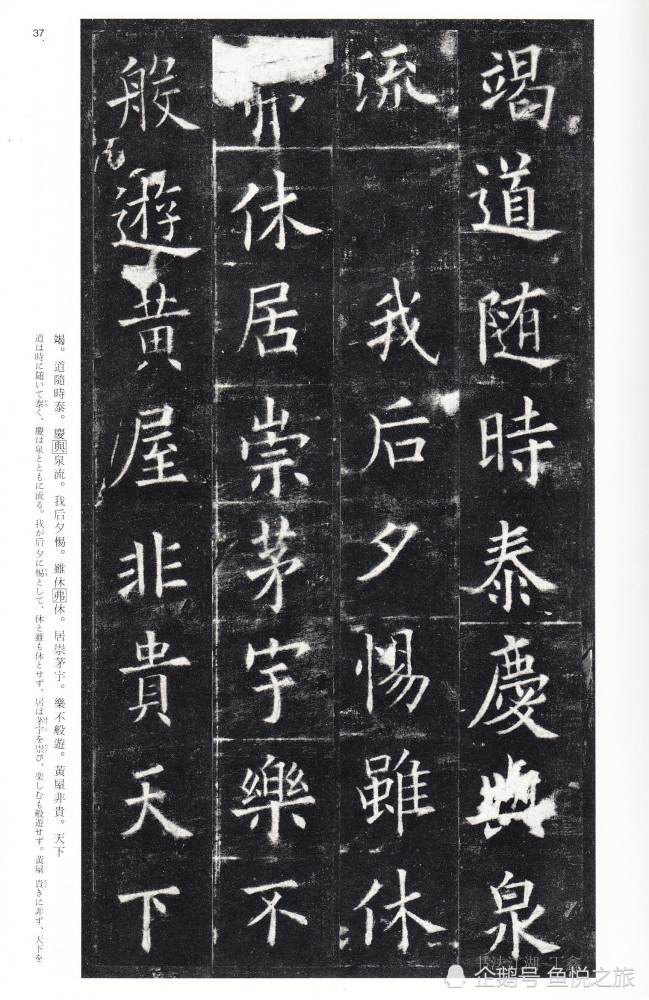 37
竭道随時泰慶與泉
流 我后夕惕雖休
弗休居崇茅宇樂不
般遊黄屋非貴天下
竭。道隨時泰。慶與泉流。我后夕惕。雖休弗休。居崇茅宇。樂不般遊。黃屋非貴。天下
道は時に随いて泰く、慶は泉とともに流る。我が后 夕に惕として、休と雖も休とせず、居は茅宇を崇び、楽しむも般遊せず。黄屋 貴きに非ず、天下を
企鹅号 鱼悦之旅